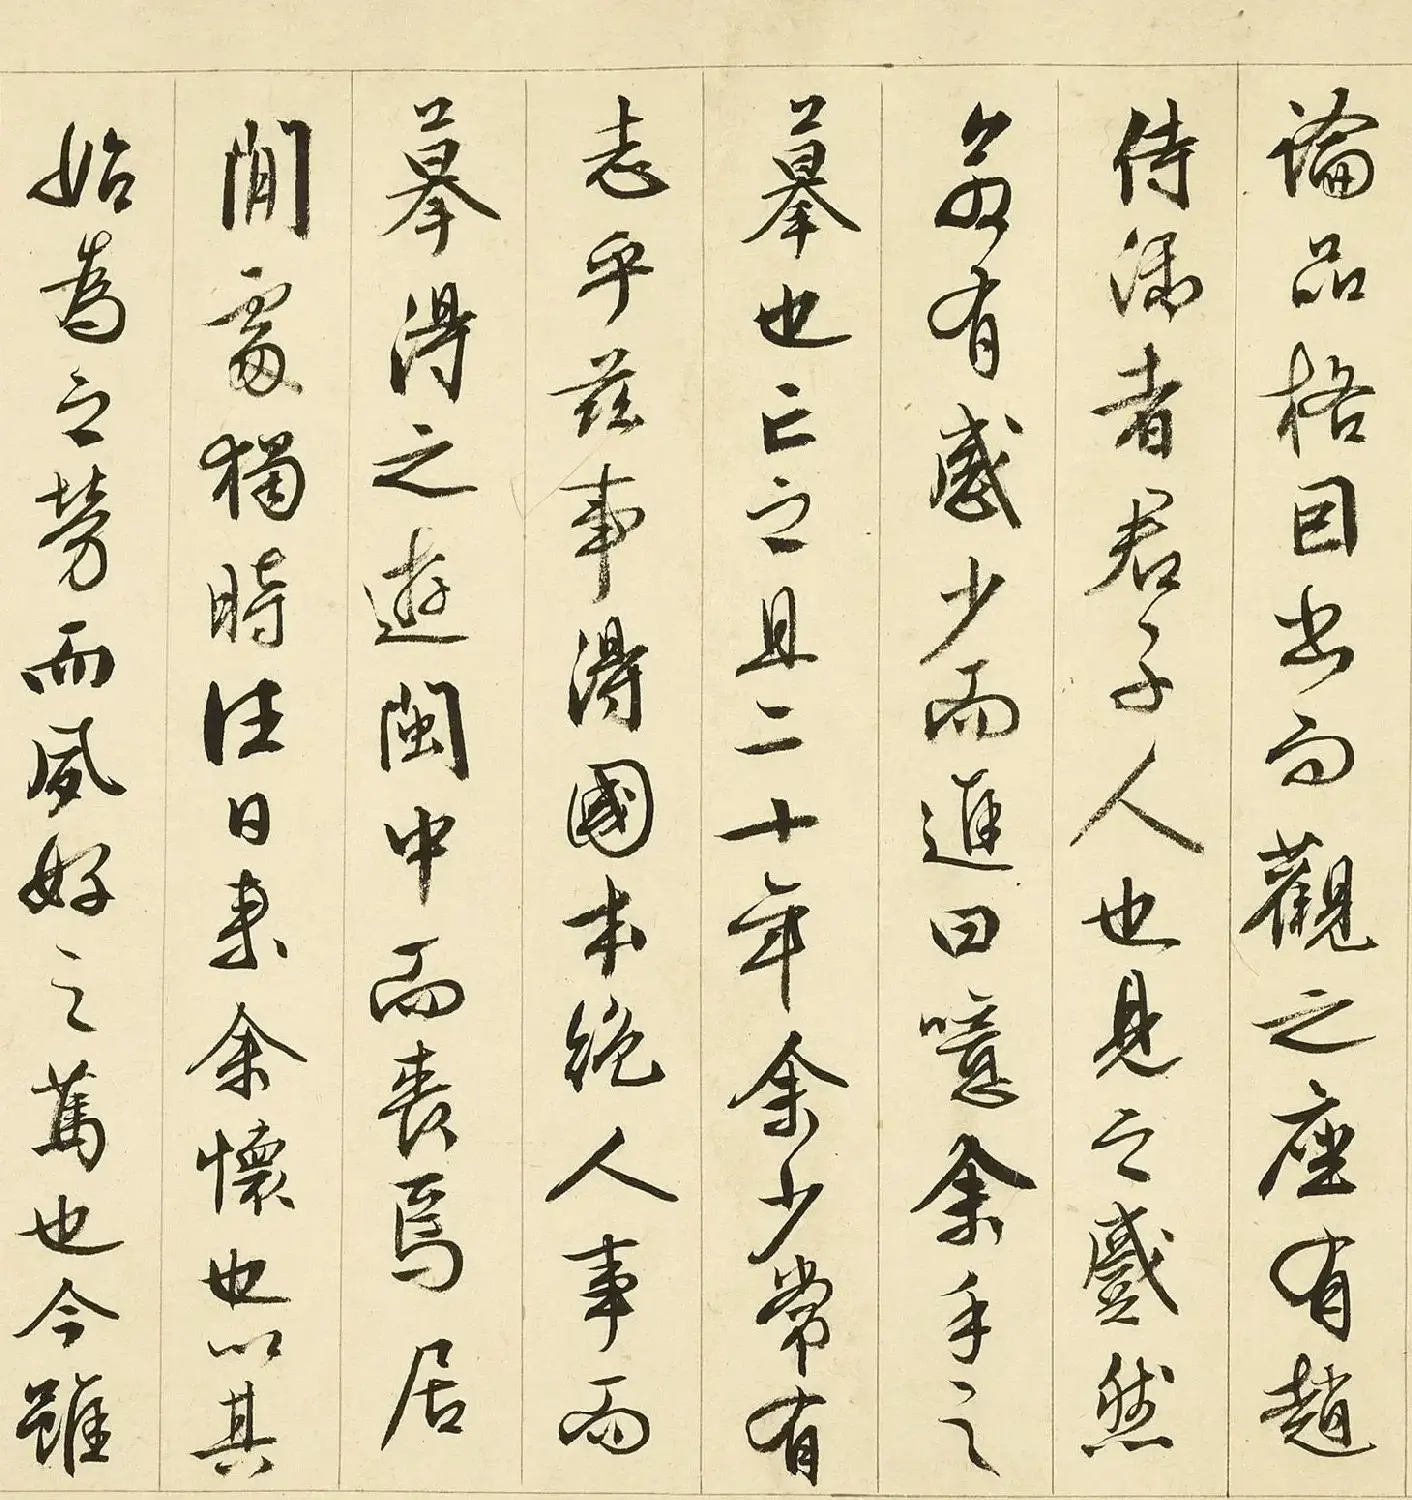 論品格因出而觀之座有趙
侍御者君子人也見之蹙然
若有感少而進曰噫余手之
摹也亡之且二十年余少常有
志乎茲事得國本絕人事而
摹得之遊閩中而喪焉居
閒處獨時往日來余懷也以其
始為之勞而夙好之篤也今雖